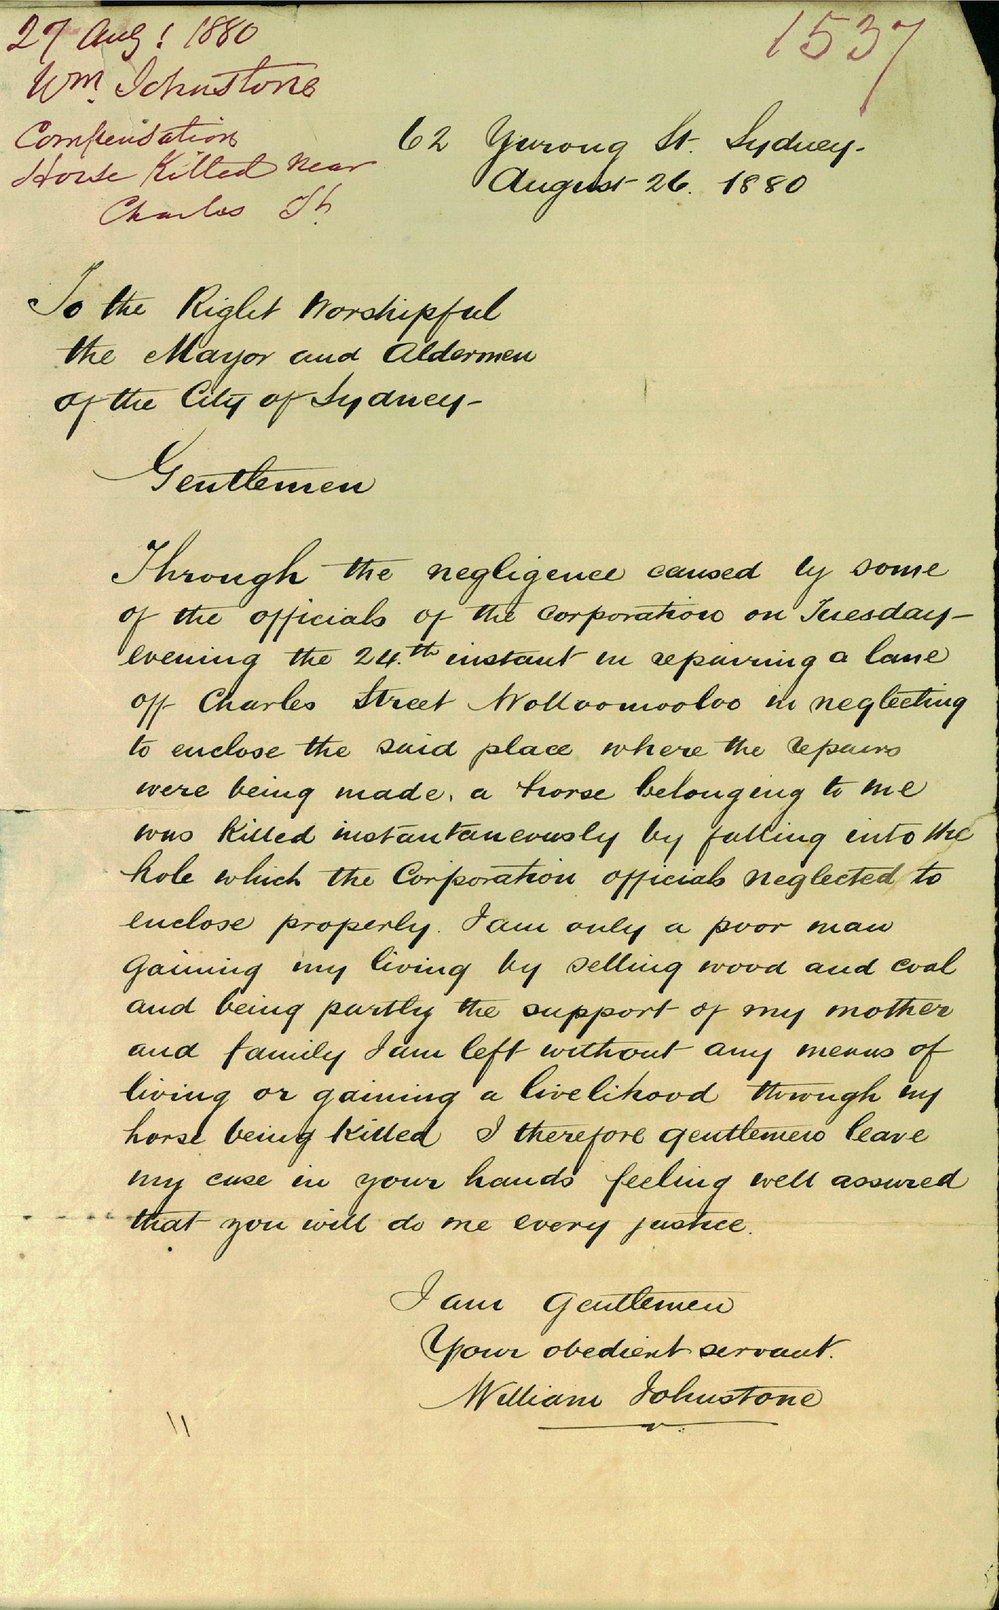 27 Aug: 1880
Wm. Johnstone
Compensation
Horse Killed near
Charles St.
1537
62 Yurong St. Sydney-
August 26. 1880
To the Right Worshipful
the Mayor and Aldermen
of the City of Sydney-
Gentlemen
Through the negligence caused by some
of the officials of the Corporation on Tuesday-
evening the 24.th instant in repairing a lane
off Charles Street Wolloomooloo in neglecting
to enclose the said place where the repairs
were being made. a horse belonging to me
was killed instantaneously by falling into the
hole which the Corporation officials neglected to
enclose properly. I am only a poor man
gaining my living by selling wood and coal
and being partly the support of my mother
and family I am left without any means of
living or gaining a livelihood through my
horse being killed I therefore gentlemen leave
my case in your hands feeling well assured
that you will do me every justice.
I am Gentlemen
Your obedient servant.
William Johnstone